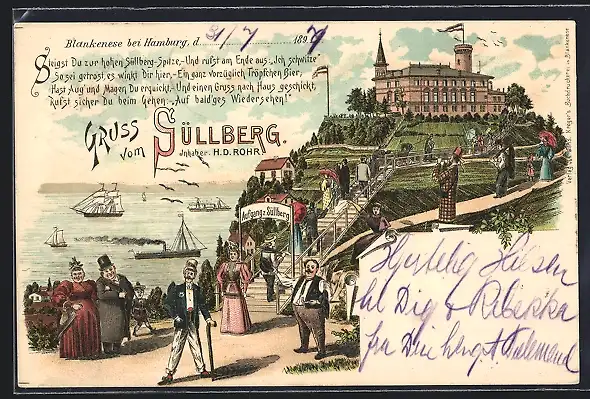 Blankenese bei Hamburg, d. 31/7 1897
Steigst Du zur hohen Süllberg-Spitze,- Und rufst am Ende aus: „Ich schwitze"
So sei getrost, es winkt Dir hier,- Ein ganz vorzüglich Tröpfchen Bier,
Hast Aug' und Magen Du erquickt,- Und einen Gruss nach Haus geschickt,
Rufst sicher Du beim Gehen: „Auf bald'ges Wiedersehen!"
GRUSS
vom SÜLLBERG.
Inhaber: H.D. ROHR
Aufgang z. Süllberg
Kröger's Buchdruckerei, Blankenese
Hjertelig Hilsen
til Dig & Rebekka
fra Din